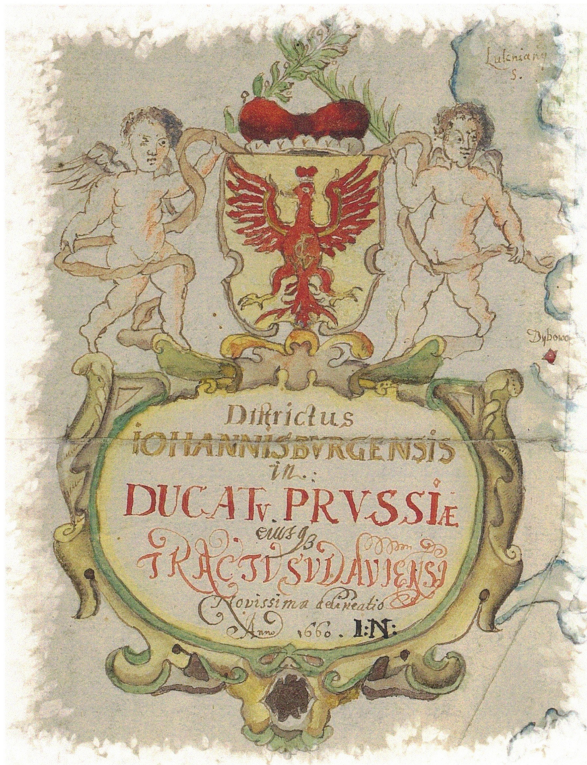 Lukniany
S.
Dybowo
Districtus
IOHANNISBVRGENSIS
in:
DUCATV PRVSSIÆ
eiusq3
TRACTV SVDAVIENSI
Novissima delineatio
Anno 1660. I:N: